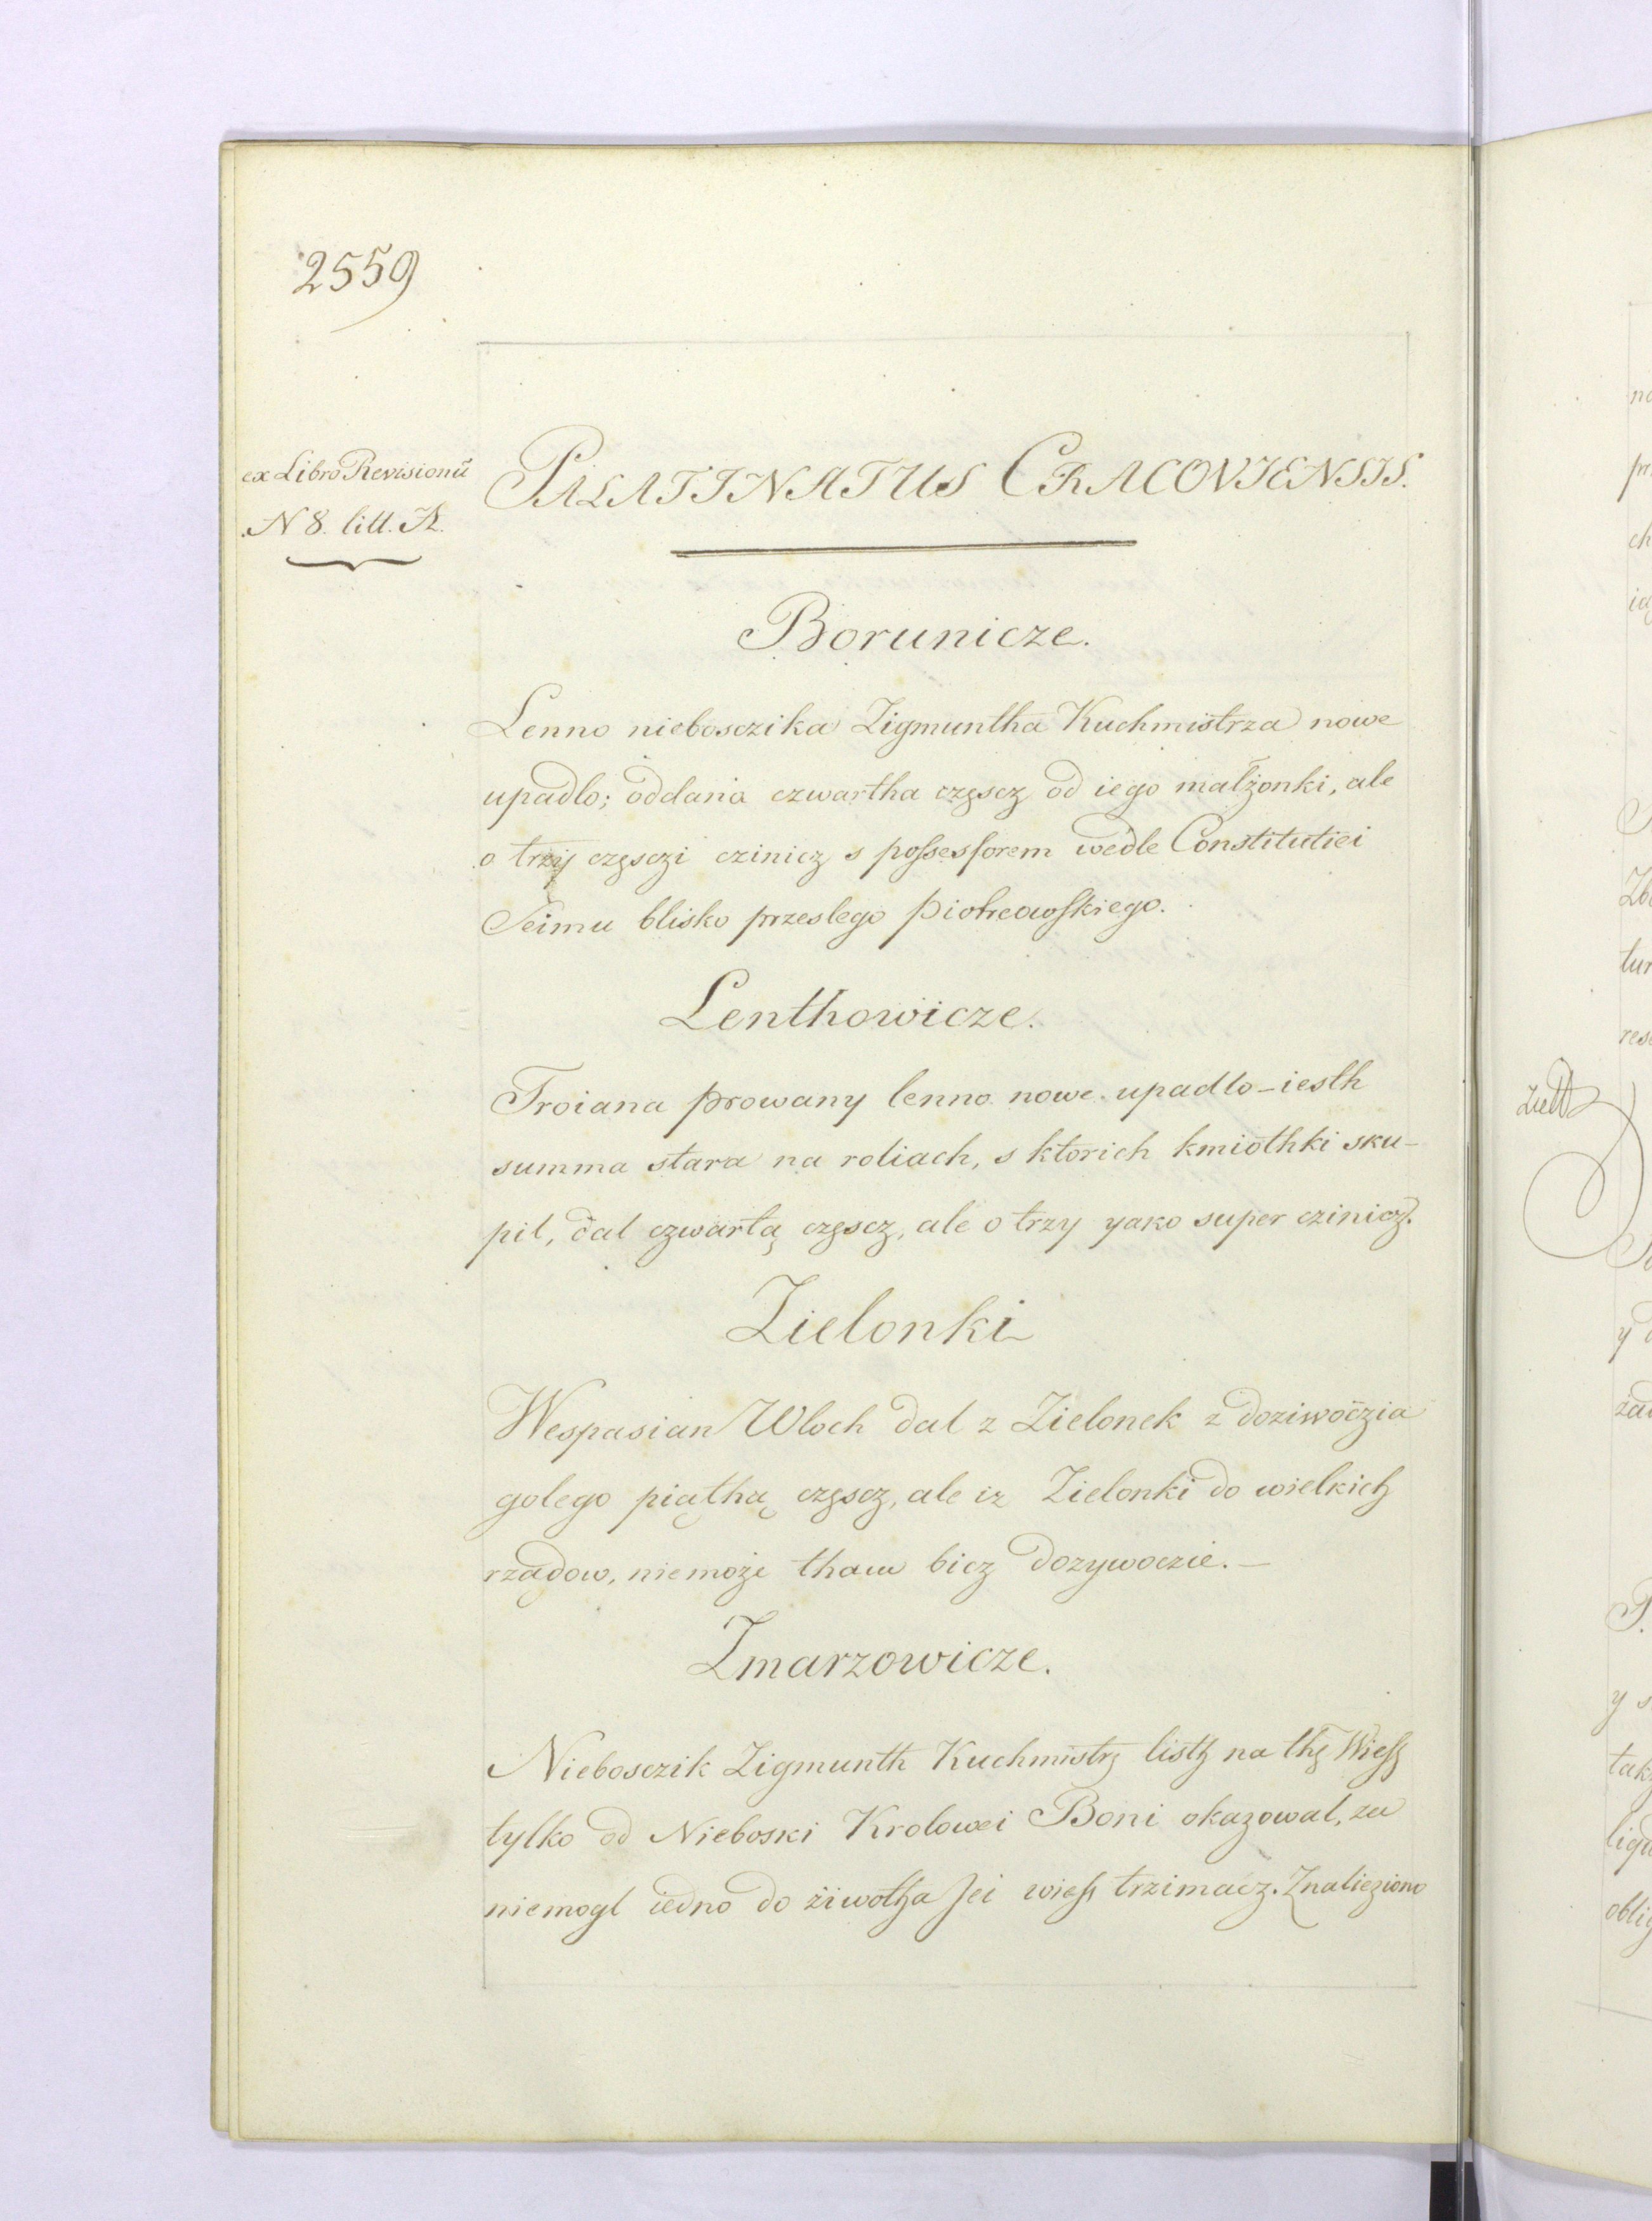 2559
ex Libro Revisionū
N 8. litt. A.
PALATINATUS CRACOVIENSIS.
Borunicze.
Lenno nieboszczika Zigmuntha Kuchmistrza nowe
upadlo; oddana czwartha częscz od iego małżonki, ale
o trzy częsczi czinicz s possessorem wedle Constitutiei
Seimu blisko przeslego Piotrcowskiego.
Lenthowicze.
Troiana prowany lenno nowe upadlo - iesth
summa stara na roliach, s ktorich kmiothki sku-
pil, dal czwartą częscz, ale o trzy yako super czinicz.
Zielonki
Wespasian Wloch dal z Zielonek z doziwoczia
golego piąthą częscz, ale iz Zielonki do wielkich
rządow, niemoże tham bicz dozywoczie. —
Zmarzowicze.
Niebosczik Zigmunth Kuchmistrz listh na thę Wiess
tylko od Nieboski Krolowei Boni okazowal, za
niemogl iedno do żiwotha Jei wiess trzimacz. Znalieziono